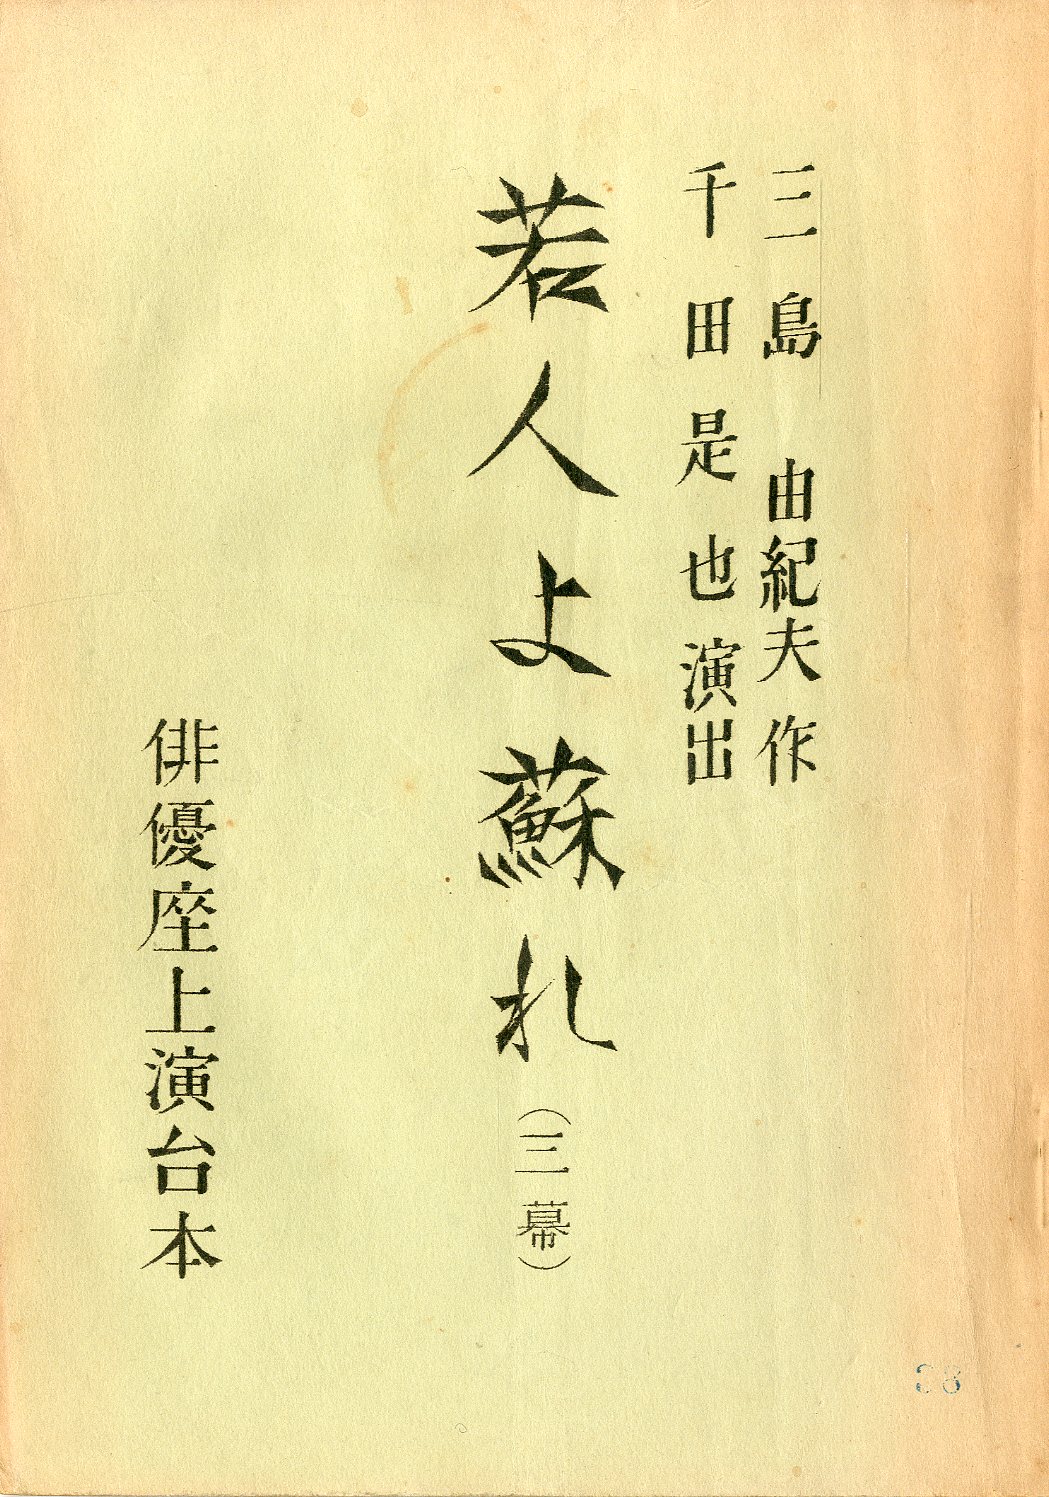 三島由紀夫作
千田是也演出
若人よ蘇れ（三幕）
俳優座上演台本
38